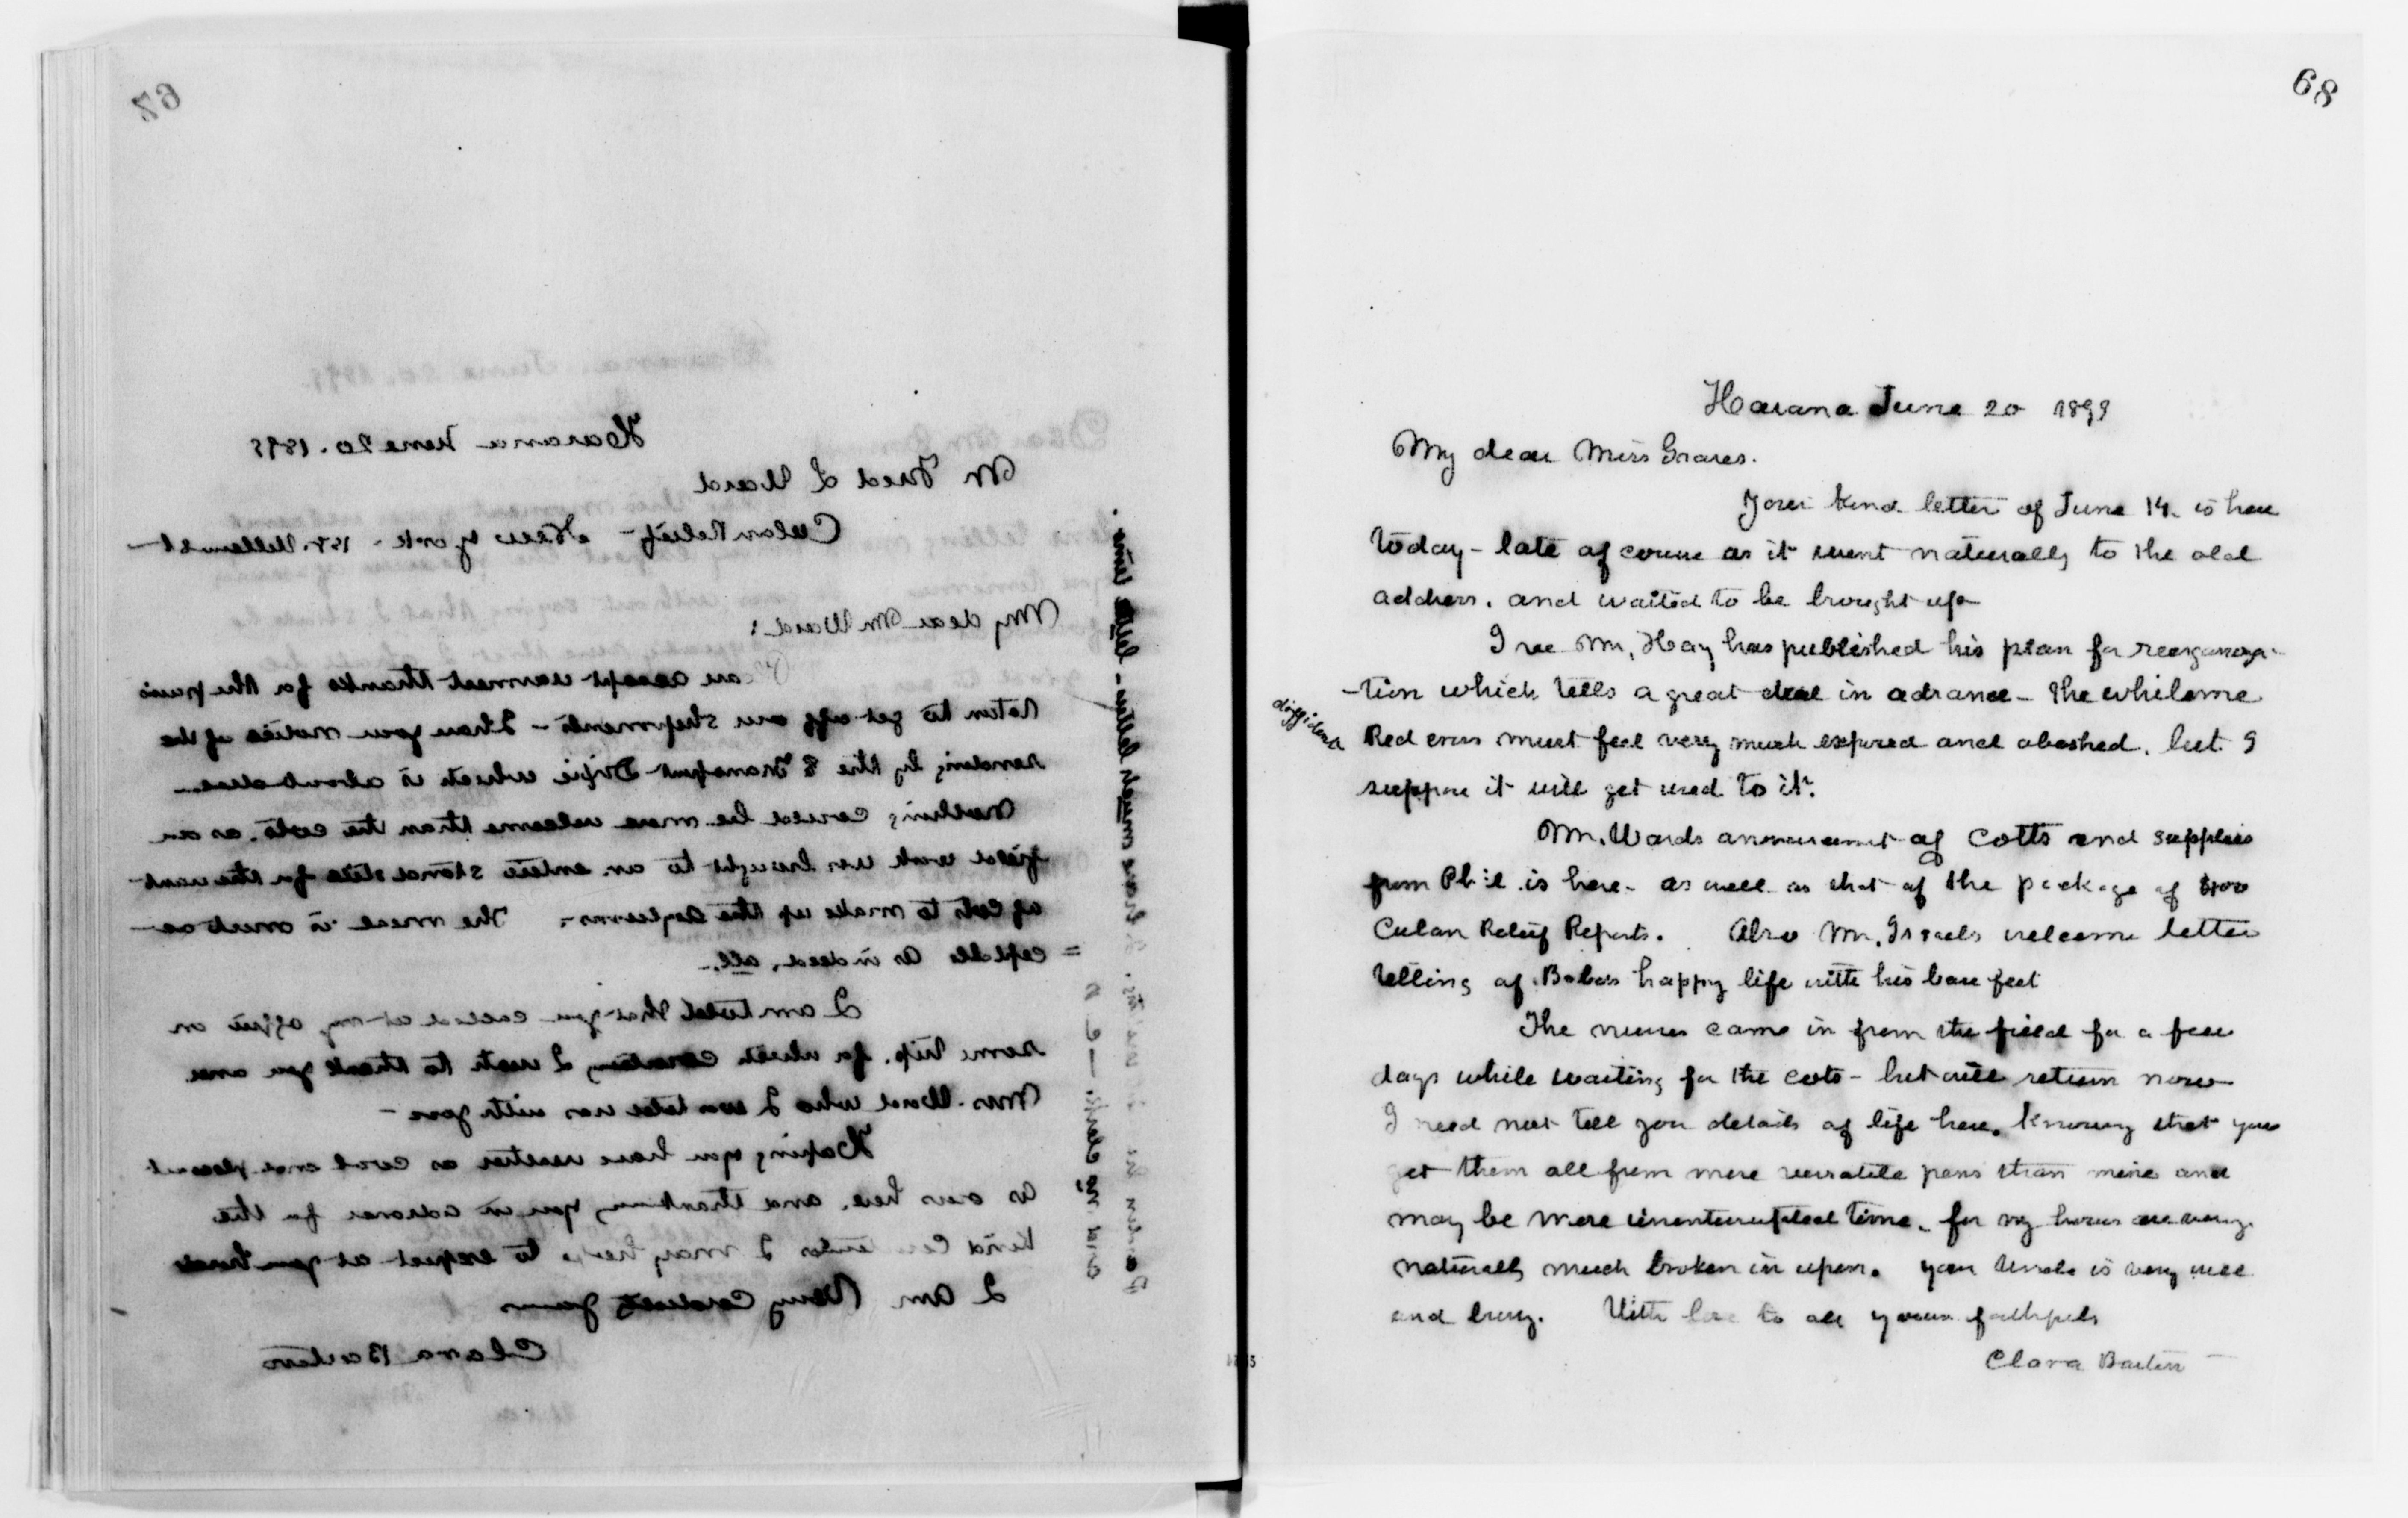 67
Havana June 20. 1899
Mr Fred L Ward
Cuban Relief - New York - 1 St.
My dear Mr Ward:
accept earnest thanks for the pains
taken to get off our shipments - I have your notice of the
sending by the Transport which is about due.
Nothing could be more welcome than the cots, as our
field work was brought to an entire stand still for the want
of cots to make up the Asylums. The meal is most ac-
=ceptable as indeed, all.
I am told that you called at my office on
some trip, for which courtesy I wish to thank you and
Mrs. Ward who I was told was with you -
Hoping you have weather as cool and pleasant
as ours here, and thanking you in advance for the
kind I may hope to expect at your hands
I am Very Cordially yours
Clara Barton
68
Havana June 20 1899
My dear Miss Graves.
Your kind letter of June 14. is here
today - late of course as it went naturally to the old
address. and waited to be brought up
I see Mr. Hay has published his plan for reorganiza-
-tion which tells a great deal in advance - the whilome
diffident
Red cross must feel very much exposed and abashed. but I
suppose it will get used to it.
Mr. Wards announcement of Cotts and supplies
from Phil. is here. as well as that of the package of 400
Cuban Relief Reports. Also Mr. Israels welcome letter
telling of Baba's happy life with his bare feet
The nurses came in from the field for a few
days while waiting for the cots - but will return now
I need not tell you details of life here. knowing that you
get them all from more versatile pens than mine and
may be more uninterrupted time. for my hours are very
naturally much broken in upon. your Uncle is very well
and busy. With love to all yours faithfully
Clara Barton